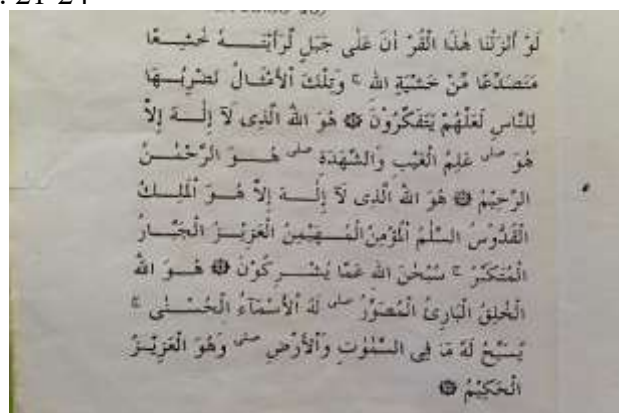 : 21-24
لَوْ أَنْزَلْنَا هٰذَا الْقُرْ أٰنَ عَلٰى جَبَلٍ لَّرَأَيْتَـــهُ خٰشِـعًا
مُتَصَدِّعًا مِّنْ خَشْيَةِ اللهِ ۚ وَتِلْكَ الْأَمْثَـالُ نَضْرِبُــهَا
لِلنَّاسِ لَعَلَّهُمْ يَتَفَكَّرُوْنَ ۝ هُوَ اللهُ الَّذِى لَآ إِلٰــهَ إِلاَّ
هُوَ صلى عٰلِمُ الْغَيْبِ وَالشَّهٰدَةِ صلى هُــوَ الرَّحْمٰــنُ
الرَّحِيْمُ ۝ هُوَ اللهُ الَّذِى لَآ إِلٰــهَ إِلاَّ هُــوَ الْمَلِــكُ
الْقُدُّوْسُ السَّلٰمُ الْمُؤْمِنُ الْمُــهَيْمِنُ الْعَزِيْــزُ الْجَبَّــارُ
الْمُتَكَبِّرُ ۚ سُبْحٰنَ اللهِ عَمَّا يُشْــرِكُوْنَ ۝ هُــوَ اللهُ
الْخٰلِقُ الْبَارِئُ الْمُصَوِّرُ صلى لَهُ الْأَسْمَآءُ الْحُسْــنٰى ۚ
يُسَبِّحُ لَهُ مَا فِى السَّمٰوٰتِ وَالْأَرْضِ صلى وَهُوَ الْعَزِيْــزُ
الْحَكِيْمُ ۝